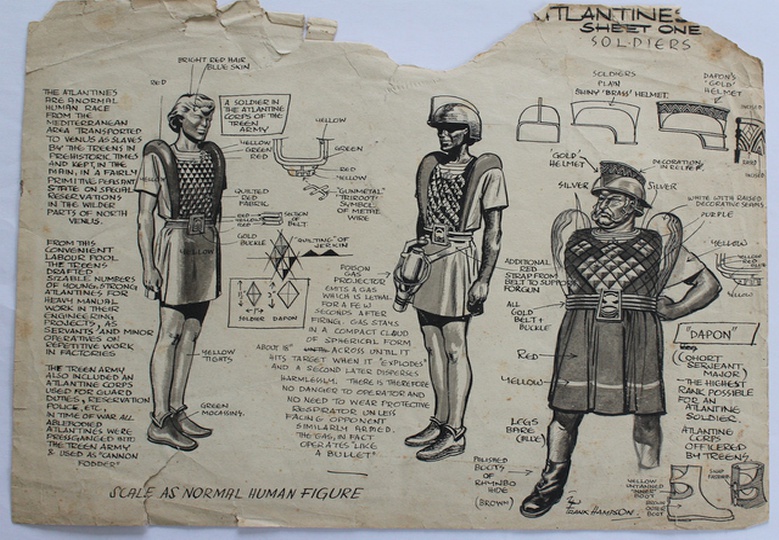 ATLANTINES
SHEET ONE
SOLDIERS
THE ATLANTINES
ARE A NORMAL
HUMAN RACE
FROM THE
MEDITERRANEAN
AREA TRANSPORTED
TO VENUS AS SLAVES
BY THE TREENS IN
PREHISTORIC TIMES
AND KEPT, IN THE
MAIN, IN A FAIRLY
PRIMITIVE PEASANT
STATE ON SPECIAL
RESERVATIONS
IN THE WILDER
PARTS OF NORTH
VENUS.
FROM THIS
CONVENIENT
LABOUR POOL
THE TREENS
DRAFTED
SIZABLE NUMBERS
OF YOUNG, STRONG
ATLANTINES FOR
HEAVY MANUAL
WORK IN THEIR
ENGINEERING
PROJECTS, AS
SERVANTS AND MINOR
OPERATIVES ON
REPETITIVE WORK
IN FACTORIES
THE TREEN ARMY
ALSO INCLUDED AN
ATLANTINE CORPS
USED FOR GUARD
DUTIES, RESERVATION
POLICE, ETC,
IN TIME OF WAR ALL
ABLEBODIED
ATLANTINES WERE
PRESSGANGED INTO
THE TREEN ARMY
& USED AS "CANNON
FODDER"
BRIGHT RED HAIR
BLUE SKIN
RED
A SOLDIER IN
THE ATLANTINE
CORPS OF THE
TREEN
ARMY
YELLOW
YELLOW
GREEN
RED
GREEN
RED
YELLOW
YELLOW
"GUNMETAL"
SYMBOL
OF METAL
WIRE
QUILTED
RED
FABRIC
RED
YELLOW
RED
SECTION
OF
BELT
GOLD
BUCKLE
"QUILTING" OF
JERKIN
YELLOW
SOLDIER
DAPON
YELLOW
TIGHTS
GREEN
MOCASSINS.
POISON
GAS
PROJECTOR
EMITS A GAS
WHICH IS LETHAL
FOR A FEW
SECONDS AFTER
FIRING. GAS STAYS
IN A COMPACT CLOUD
OF SPHERICAL FORM
ABOUT 18" ACROSS UNTIL IT
HITS TARGET WHEN IT "EXPLODES"
AND A SECOND LATER DISPERSES
HARMLESSLY. THERE IS THEREFORE
NO DANGER TO OPERATOR AND
NO NEED TO WEAR PROTECTIVE
RESPIRATOR UNLESS
FACING OPPONENT
SIMILARLY ARMED.
THE GAS, IN FACT
OPERATES "LIKE
A BULLET"
SCALE AS NORMAL HUMAN FIGURE
SOLDIERS
PLAIN
SHINY 'BRASS' HELMET.
DAPON'S
'GOLD'
HELMET
INCISED
INCISED
'GOLD'
HELMET
DECORATION
IN RELIEF
SILVER
SILVER
WHITE WITH RAISED
DECORATIVE SEAMS.
PURPLE
YELLOW
YELLOW
ADDITIONAL
RED
STRAP FROM
BELT TO SUPPORT
FOR GUN
ALL
GOLD
BELT &
BUCKLE
RED
YELLOW
LEGS
BARE
(BLUE)
POLISHED
BOOTS
OF
RHYNBO
HIDE
(BROWN)
"DAPON"
(COHORT
SERJEANT
MAJOR)
— THE HIGHEST
RANK POSSIBLE
FOR AN
ATLANTINE
SOLDIER.
ATLANTINE
CORPS
OFFICERED
BY TREENS
YELLOW
UNTANNED
"INNER"
BOOT
BROWN
OUTER
BOOT
FRANK HAMPSON.